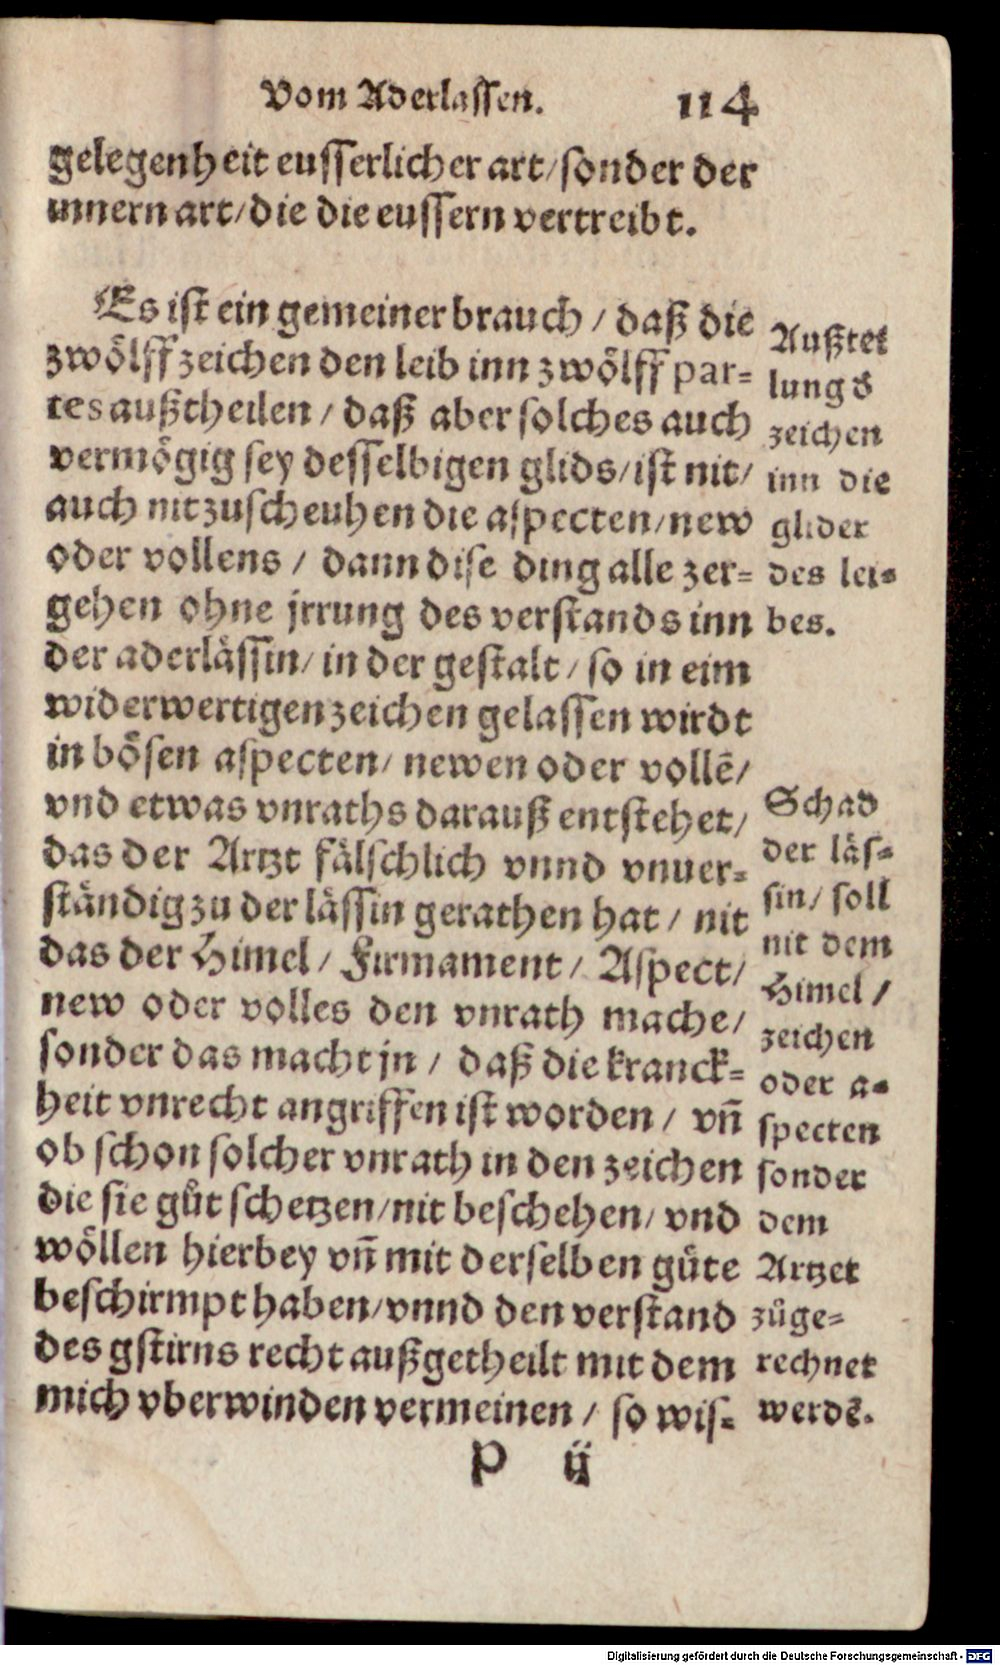 Vom Aderlassen. 114
gelegenheit eusserlicher art/sonder der
innern art/die die eussern vertreibt.
Es ist ein gemeiner brauch / daß die
zwölff zeichen den leib inn zwölff par-
tes außtheilen / daß aber solches auch
vermögig sey desselbigen glids/ist nit/
auch nit zuscheuhen die aspecten/new
oder vollens / dann dise ding alle zer-
gehen ohne jrrung des verstands inn
der aderlässin/ in der gestalt / so in eim
widerwertigen zeichen gelassen wirdt
in bösen aspecten/ newen oder vollē/
vnd etwas vnraths darauß entstehet/
das der Artzt fälschlich vnnd vnuer-
ständig zu der lässin gerathen hat / nit
das der Himel / Firmament / Aspect/
new oder volles den vnrath mache/
sonder das macht jn / daß die kranck-
heit vnrecht angriffen ist worden / vñ
ob schon solcher vnrath in den zeichen
die sie gůt schetzen/nit beschehen/ vnd
wöllen hierbey vñ mit derselben güte
beschirmpt haben/vnnd den verstand
des gstirns recht außgetheilt mit dem
mich vberwinden vermeinen / so wis-
P ij
Außtei
lung d
zeichen
inn die
glider
des lei-
bes.
Schad
der läs-
sin/ soll
nit dem
Himel /
zeichen
oder a-
specten
sonder
dem
Artzet
zůge-
rechnet
werdē.
Digitalisierung gefördert durch die Deutsche Forschungsgemeinschaft - DFG